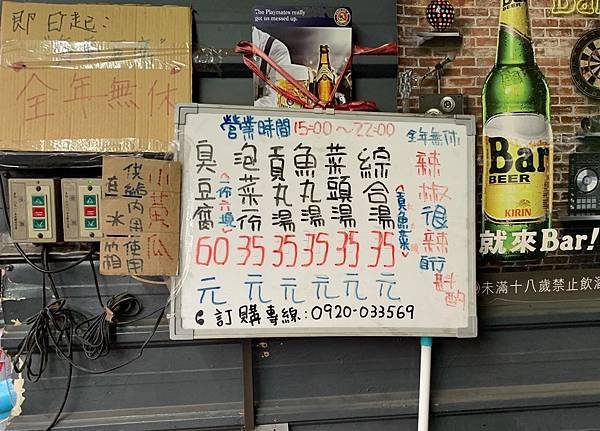 即日起:
全年無休
The Playmates really
got us messed up.
營業時間 15:00~22:00 全年無休
臭豆腐 <一份六塊> 60元
泡菜一份 35元
貢丸湯 35元
魚丸湯 35元
菜頭湯 35元
綜合湯 <貢魚菜> 35元
辣椒很辣自行斟酌
訂購專線:0920-033569
小黃瓜
冰箱
使用
Bar
BEER
KIRIN
就來Bar!
未滿十八歲禁止飲酒